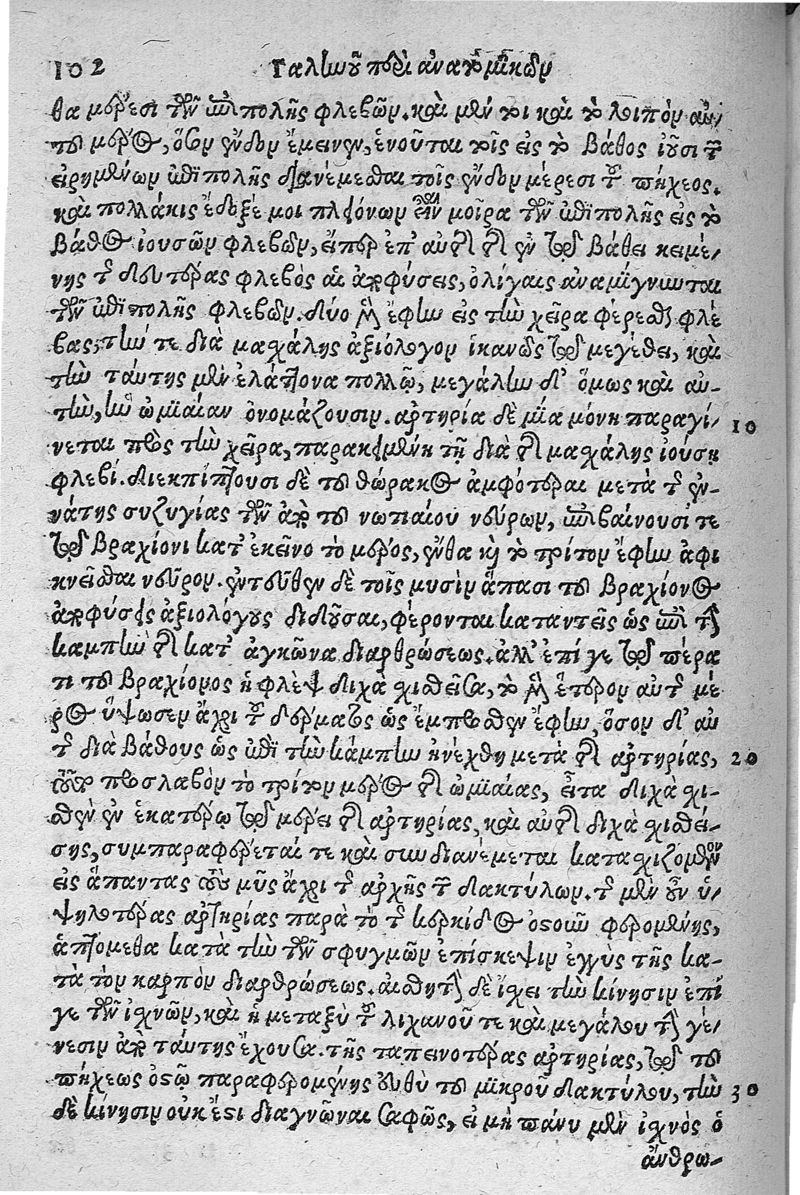 102 Γαλιωοῦ περὶ ἀνατομικῶν
θα μέρεσι τῶν ἐπιπολῆς φλεβῶν. καὶ μέν τοι καὶ τὸ λοιπὸν αὐ-
τοῦ μέρος, ὅπερ ἔνδον ἔμεινεν, ἑνοῦται τοῖς εἰς τὸ βάθος ἰοῦσι τῶν
εἰρημένων ἐπιπολῆς διανέμεσθαι τοῖς ἔνδον μέρεσι τοῦ πήχεος.
καὶ πολλάκις ἔδοξέ μοι πλείονων εἶναι μοῖρα τῶν ἐπιπολῆς εἰς τὸ
βάθος ἰουσῶν φλεβῶν, εἴπερ ἐπ' αὐτῆς τῆς ἐν τῷ βάθει κειμέ-
νης τῆς δευτέρας φλεβὸς αἱ ἀποφύσεις, ὀλίγαις ἀναμίγνυνται
τῶν ἐπιπολῆς φλεβῶν. δύο δὲ ἔφην εἰς τὴν χεῖρα φέρεσθαι φλέ-
βας, τήν τε διὰ μασχάλης ἀξιόλογον ἱκανῶς τῷ μεγέθει, καὶ
τὴν ταύτης μὲν ἐλάττονα πολλῷ, μεγάλην δ' ὅμως καὶ αὐ-
τὴν, ἣν ὠμιαίαν ὀνομάζουσιν. ἀρτηρία δὲ μία μόνη παραγί- 10
νεται πρὸς τὴν χεῖρα, παρακειμένη τῇ διὰ τῆς μασχάλης ἰούσῃ
φλεβί. διεκπίπτουσι δὲ τοῦ θώρακος ἀμφότεραι μετὰ τῆς ἐν-
νάτης συζυγίας τῶν ἀπὸ τοῦ νωτιαίου νεύρων, ἐπιβαίνουσί τε
τῷ βραχίονι κατ' ἐκεῖνο τὸ μέρος, ἔνθα καὶ τὸ τρίτον ἔφην ἀφι
κνεῖσθαι νεῦρον. ἐντεῦθεν δὲ τοῖς μυσὶν ἅπασι τοῦ βραχίονος
ἀποφύσεις ἀξιολόγους διδοῦσαι, φέρονται καταντεῖς ὡς ἐπὶ τὴν
καμπὴν τῆς κατ' ἀγκῶνα διαρθρώσεως. ἀλλ' ἐπί γε τῷ πέρα
τι τοῦ βραχίονος ἡ φλὲψ διχὰ χισθεῖσα, τὸ μὲν ἕτερον αὐτῆς μέ
ρος ὕψωσεν ἄχρι τοῦ δέρματος ὡς ἔμπροσθεν ἔφην, ὅσον δ' αὖ
τῆς διὰ βάθους ὡς ἐπὶ τὴν κάμπην ἠνέχθη μετὰ τῆς ἀρτηρίας, 20
τοῦτο προσλαβὸν τὸ τρίτον μέρος τῆς ὠμιαίας, εἶτα διχὰ χι-
σθὲν ἐν ἑκατέρῳ τῷ μέρει τῆς ἀρτηρίας, καὶ αὐτῆς διχὰ χισθεί-
σης, συμπαραφέρεταί τε καὶ συνδιανέμεται καταχιζόμενον
εἰς ἅπαντας τοὺς μῦς ἄχρι τῆς ἀρχῆς τῶν δακτύλων. τῆς μὲν οὖν ὑ-
ψηλοτέρας ἀρτηρίας παρὰ τὸ τῆς κερκίδος ὀστοῦν φερομένης,
ἁπτόμεθα κατὰ τὴν τῶν σφυγμῶν ἐπίσκεψιν ἐγγὺς τῆς κα-
τὰ τὸν καρπὸν διαρθρώσεως. αἰσθητὴν δὲ ἴχει τὴν κίνησιν ἐπί
γε τῶν ἰχνῶν, καὶ ἡ μεταξὺ τοῦ λιχανοῦ τε καὶ μεγάλου τὴν γέ-
νεσιν ἀπὸ ταύτης ἔχουσα. τῆς ταπεινοτέρας ἀρτηρίας, τῷ τοῦ
πήχεως ὀστῷ παραφερομένης εὐθὺ τοῦ μικροῦ δακτύλου, τὴν 30
δὲ κίνησιν οὐκ ἔστι διαγνῶναι σαφῶς, εἰ μὴ πάνυ μὲν ἰχνὸς ὁ
ἄνθρω-